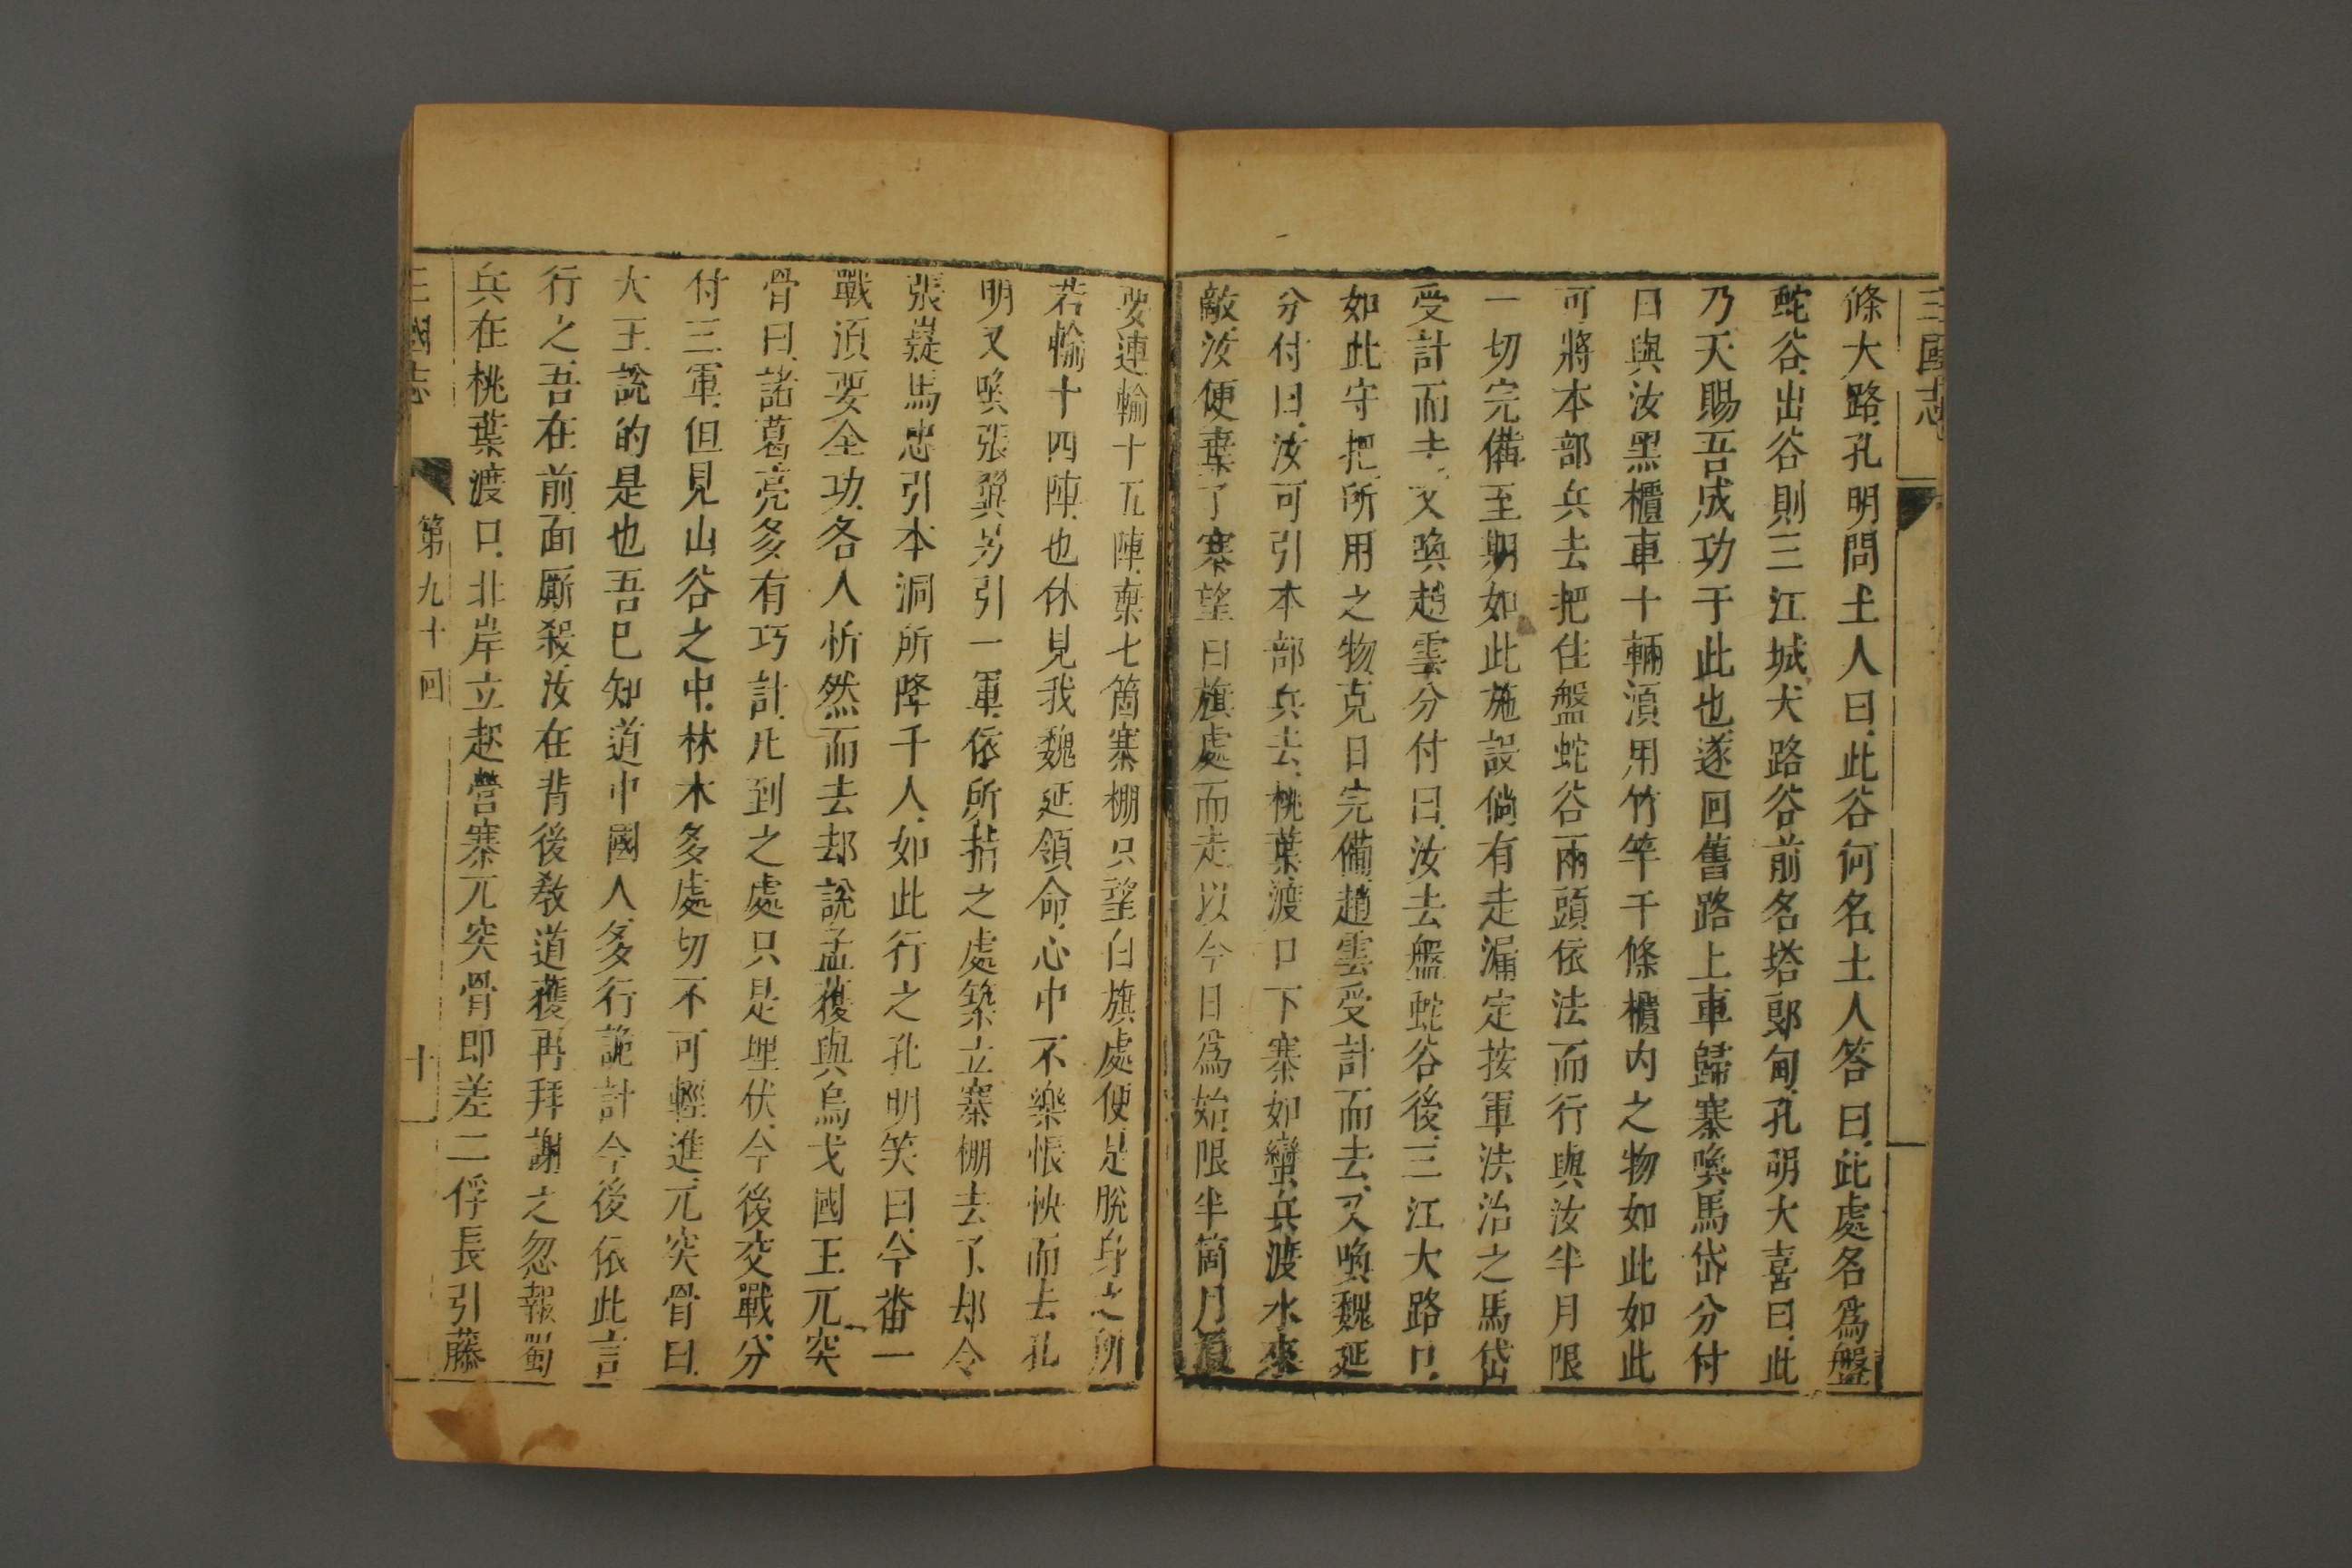 三國志
條大路孔明問土人曰此谷何名土人答曰此處名爲盤
蛇谷出谷則三江城大路谷前名塔郎甸孔明大喜曰此
乃天賜吾成功于此也遂回舊路上車歸寨喚馬岱分付
曰與汝黑櫃車十輛須用竹竿千條櫃内之物如此如此
可將本部兵去把住盤蛇谷兩頭依法而行與汝半月限
一切完備至期如此施設倘有走漏定按軍法治之馬岱
受計而去又喚趙雲分付曰汝去盤蛇谷後三江大路口
如此守把所用之物克日完備趙雲受計而去又喚魏延
分付曰汝可引本部兵去桃葉渡口下寨如蠻兵渡水來
敵汝便棄了寨望白旗處而走以今日爲始限半箇月須
要連輸十五陣棄七箇寨棚只望白旗處便是脫身之所
若輸十四陣也休見我魏延領命心中不樂悵怏而去孔
明又喚張翼另引一軍依所指之處築立寨棚去了却令
張嶷馬忠引本洞所降千人如此行之孔明笑曰今番一
戰須要全功各人忻然而去却說孟獲與烏戈國王兀突
骨曰諸葛亮多有巧計凡到之處只是埋伏今後交戰分
付三軍但見山谷之中林木多處切不可輕進兀突骨曰
大王說的是也吾已知道中國人多行詭計今後依此言
行之吾在前面厮殺汝在背後教道獲再拜謝之忽報蜀
兵在桃葉渡口北岸立起營寨兀突骨即差二俘長引藤
三國志 第九十回 十